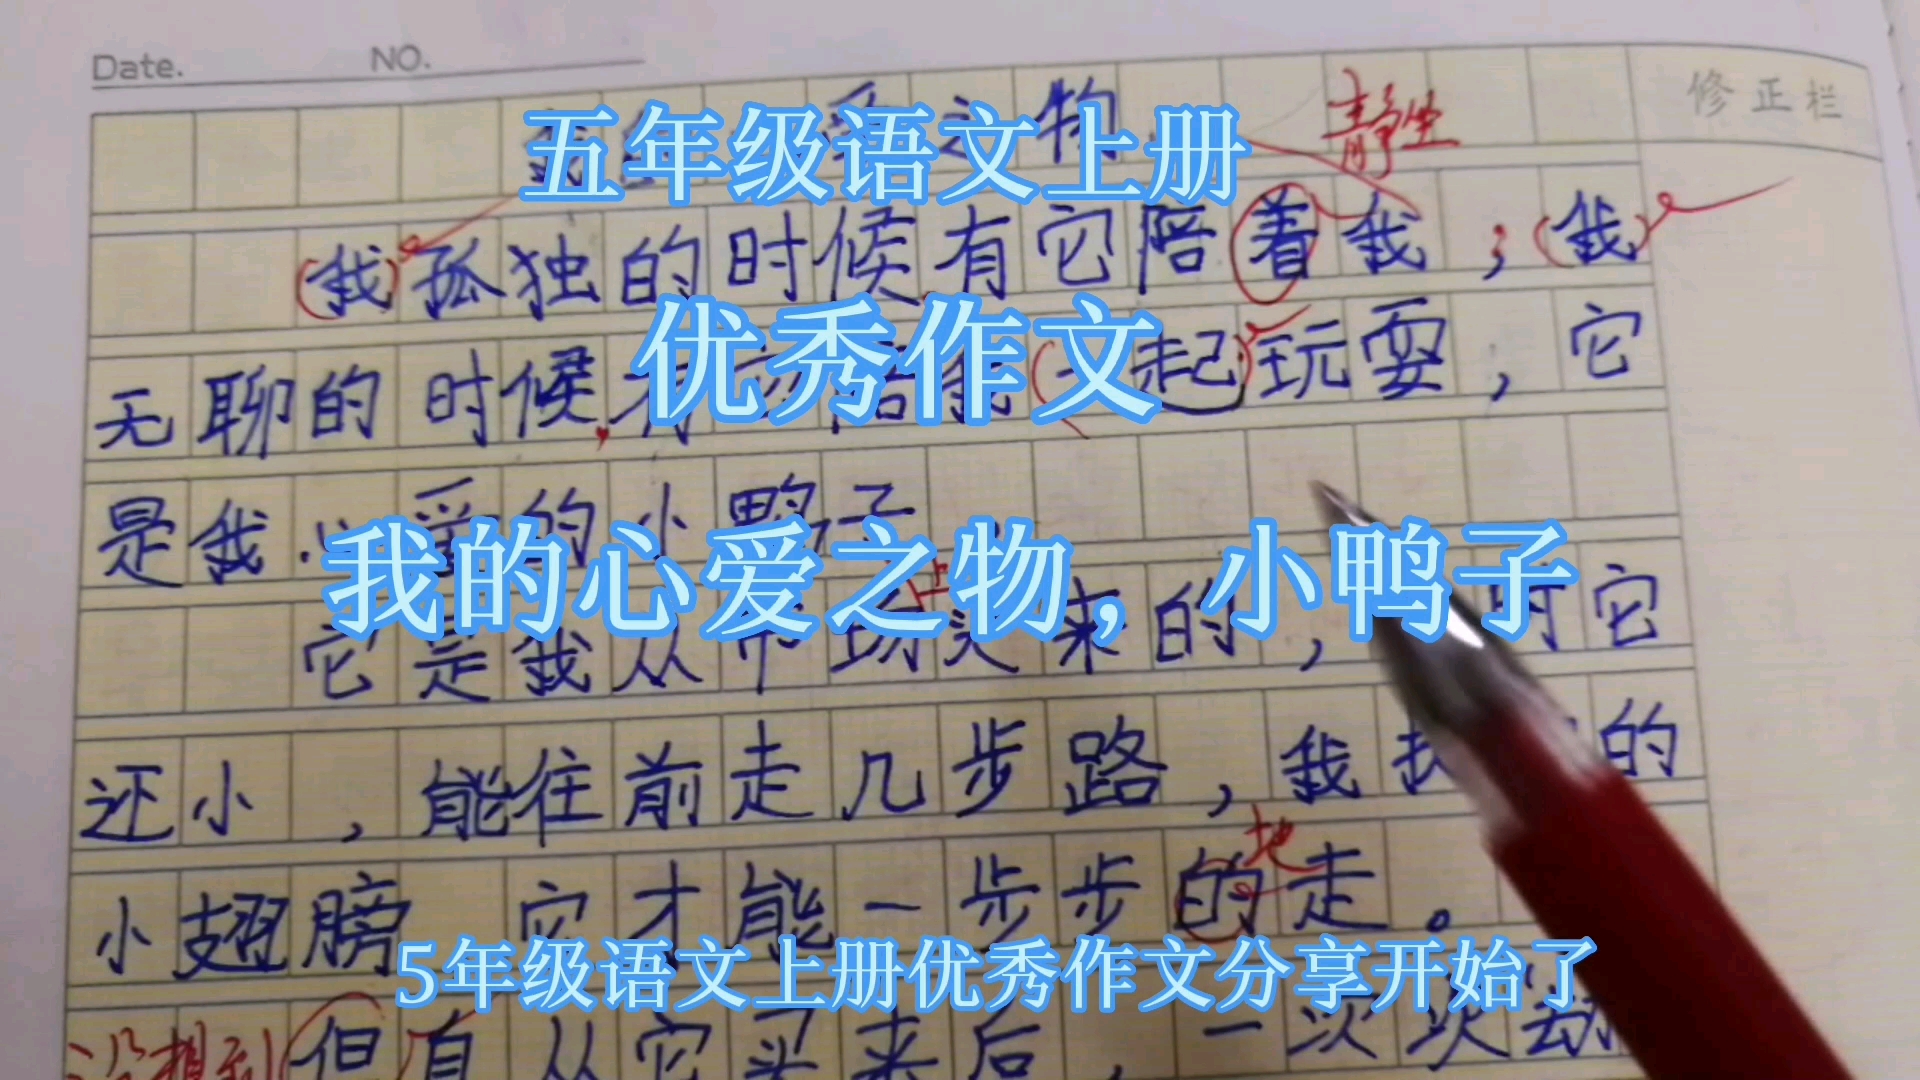 Date. NO.
修正栏
五年级语文上册
爱之物
静坐
(我)孤独的时候,有它陪着我;(我)
优秀作文
无聊的时候,有 起)玩耍,它
是我心爱的小鸭子
我的心爱之物，小鸭子
上
它是我从市场买来的, 时它
还小,能往前走几步路,我 的
地
小翅膀 它才能一步步的走。
5年级语文上册优秀作文分享开始了
没想到(但自从它买来后,一次次